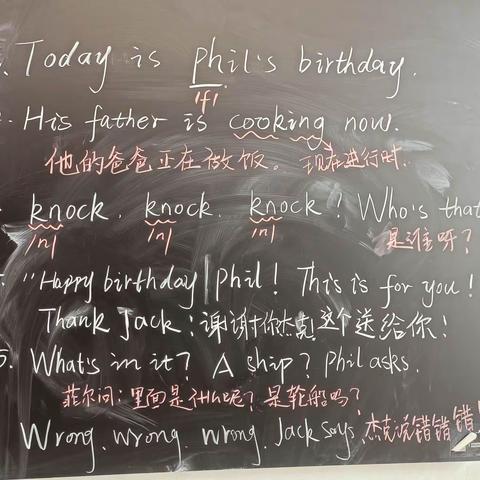 Today is Phil's birthday.
/f/
His father is cooking now.
他的爸爸正在做饭。现在进行时.
knock, knock, knock! Who's that
/n/ /n/ /n/ 是谁呀?
"Happy birthday Phil! This is for you!
Thank Jack! 谢谢你杰克 这个送给你!
5. What's in it? A ship? Phil asks.
菲尔问: 里面是什么呢? 是轮船吗?
Wrong, wrong, wrong, Jack says, 杰克说错错错!